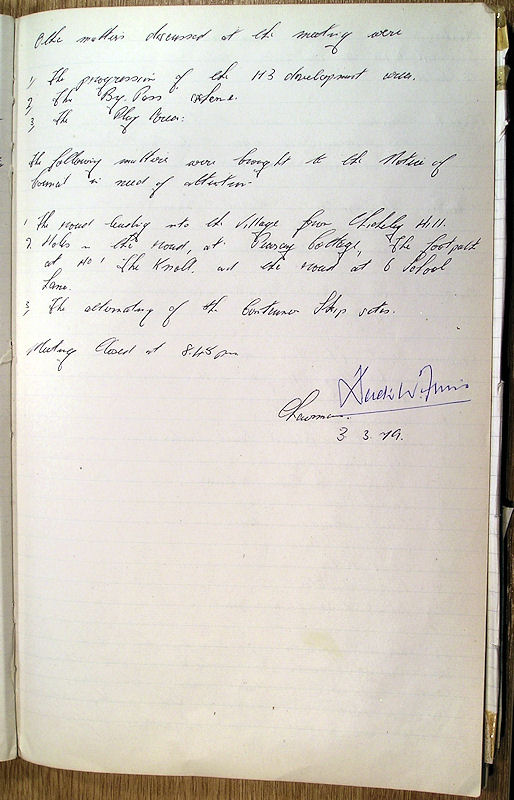 Other matters discussed at the meeting were
1, The progression of the H3 development area.
2, The By. Pass scheme.
3, The Play Area.
The following matters were brought to the Notice of
Council in need of attention
1 The road leading into the Village from Chicheley Hill.
2. Holes in the road, at Cottage, The footpath
at No 1 The Knoll, and the road at 6 School
Lane.
3, The alternating of the Container Skip sites.
Meeting Closed at 8.45 pm
Chairman.
3. 3. 79.